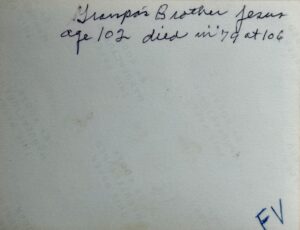 Granpa's Brother Jesus
age 102 died in '79 at 106
FV